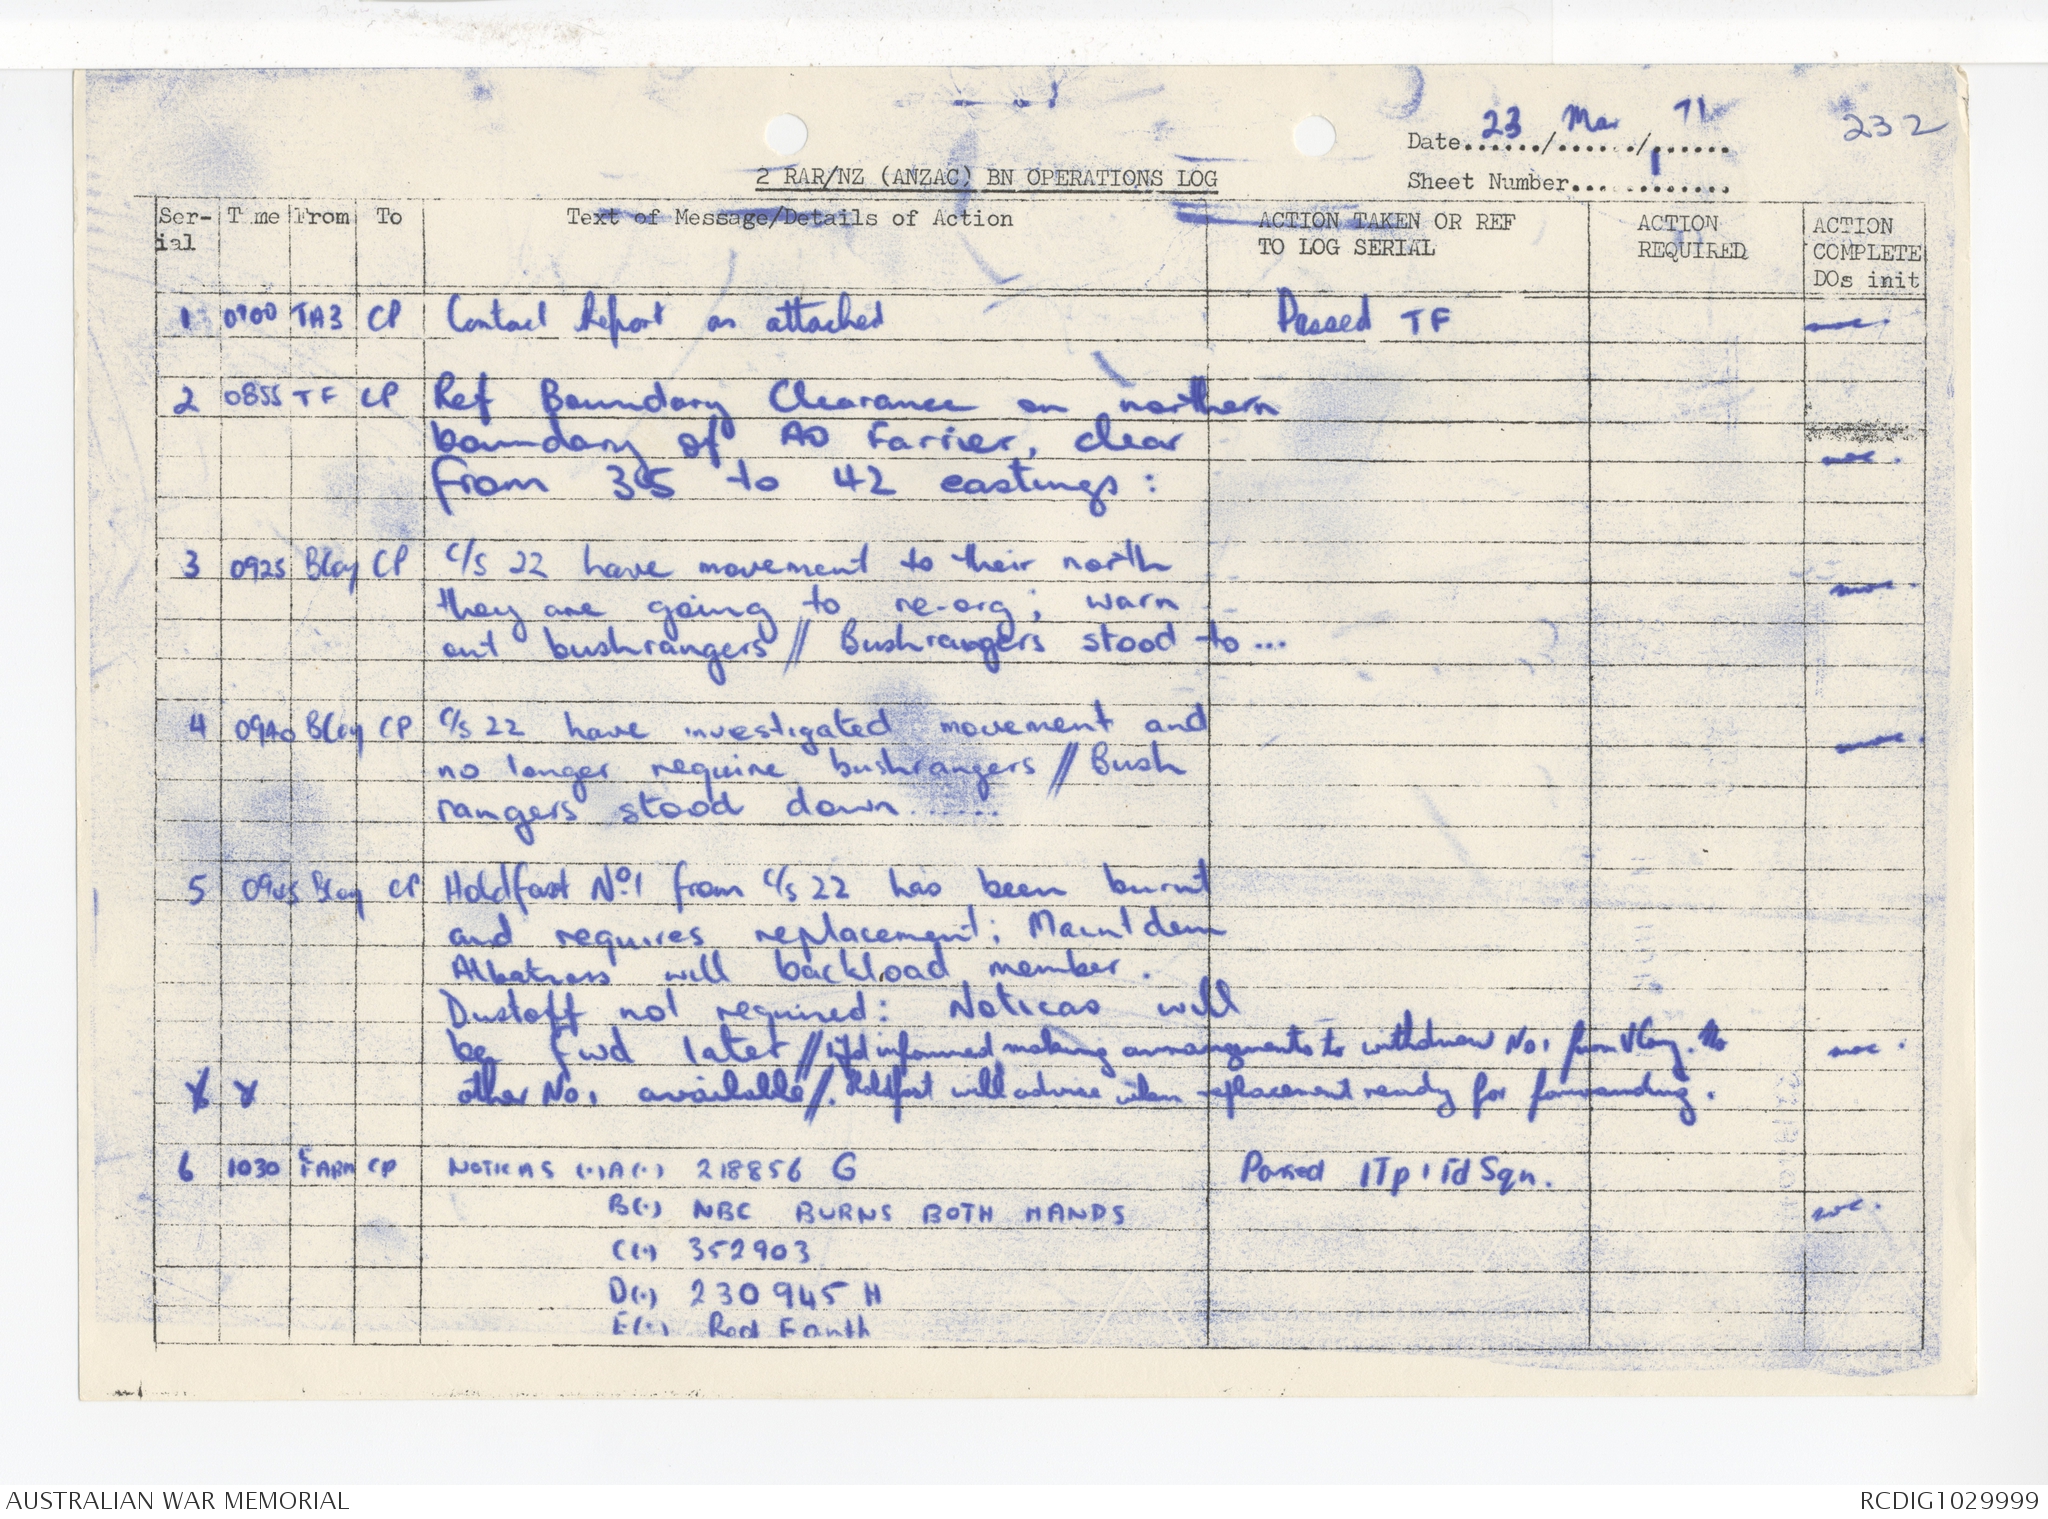 232
Date 23 / Mar / 71
Sheet Number 1
2 RAR/NZ (ANZAC) BN OPERATIONS LOG
Ser-ial Time From To Text of Message/Details of Action ACTION TAKEN OR REF TO LOG SERIAL ACTION REQUIRED ACTION COMPLETE DOs init
1 0700 TA3 CP Contact Report as attached Passed TF
2 0855 TF CP Ref Boundary Clearance on northern
boundary of AO Farrier, clear
from 35 to 42 eastings:
3 0925 BCoy CP C/S 22 have movement to their north
they are going to re-org; warn
out bushrangers // Bushrangers stood to...
4 0940 BCoy CP C/S 22 have investigated movement and
no longer require bushrangers // Bush
rangers stood down......
5 0945 BCoy CP Holdfast No.1 from C/S 22 has been burnt
and requires replacement; Maintdem
Albatross will backload member.
Dustoff not required: Noticas will
be fwd later // informed making arrangements to withdraw No 1 from V Coy. No
other No 1 available //. Holdfast will advise when replacement ready for forwarding.
6 1030 CP NOTICAS (.) A(.) 218856 G Passed 1Tp 1 Fd Sqn.
B(.) NBC BURNS BOTH HANDS
C(.) 352903
D(.) 230945 H
E(.) Red Earth
AUSTRALIAN WAR MEMORIAL
RCDIG1029999